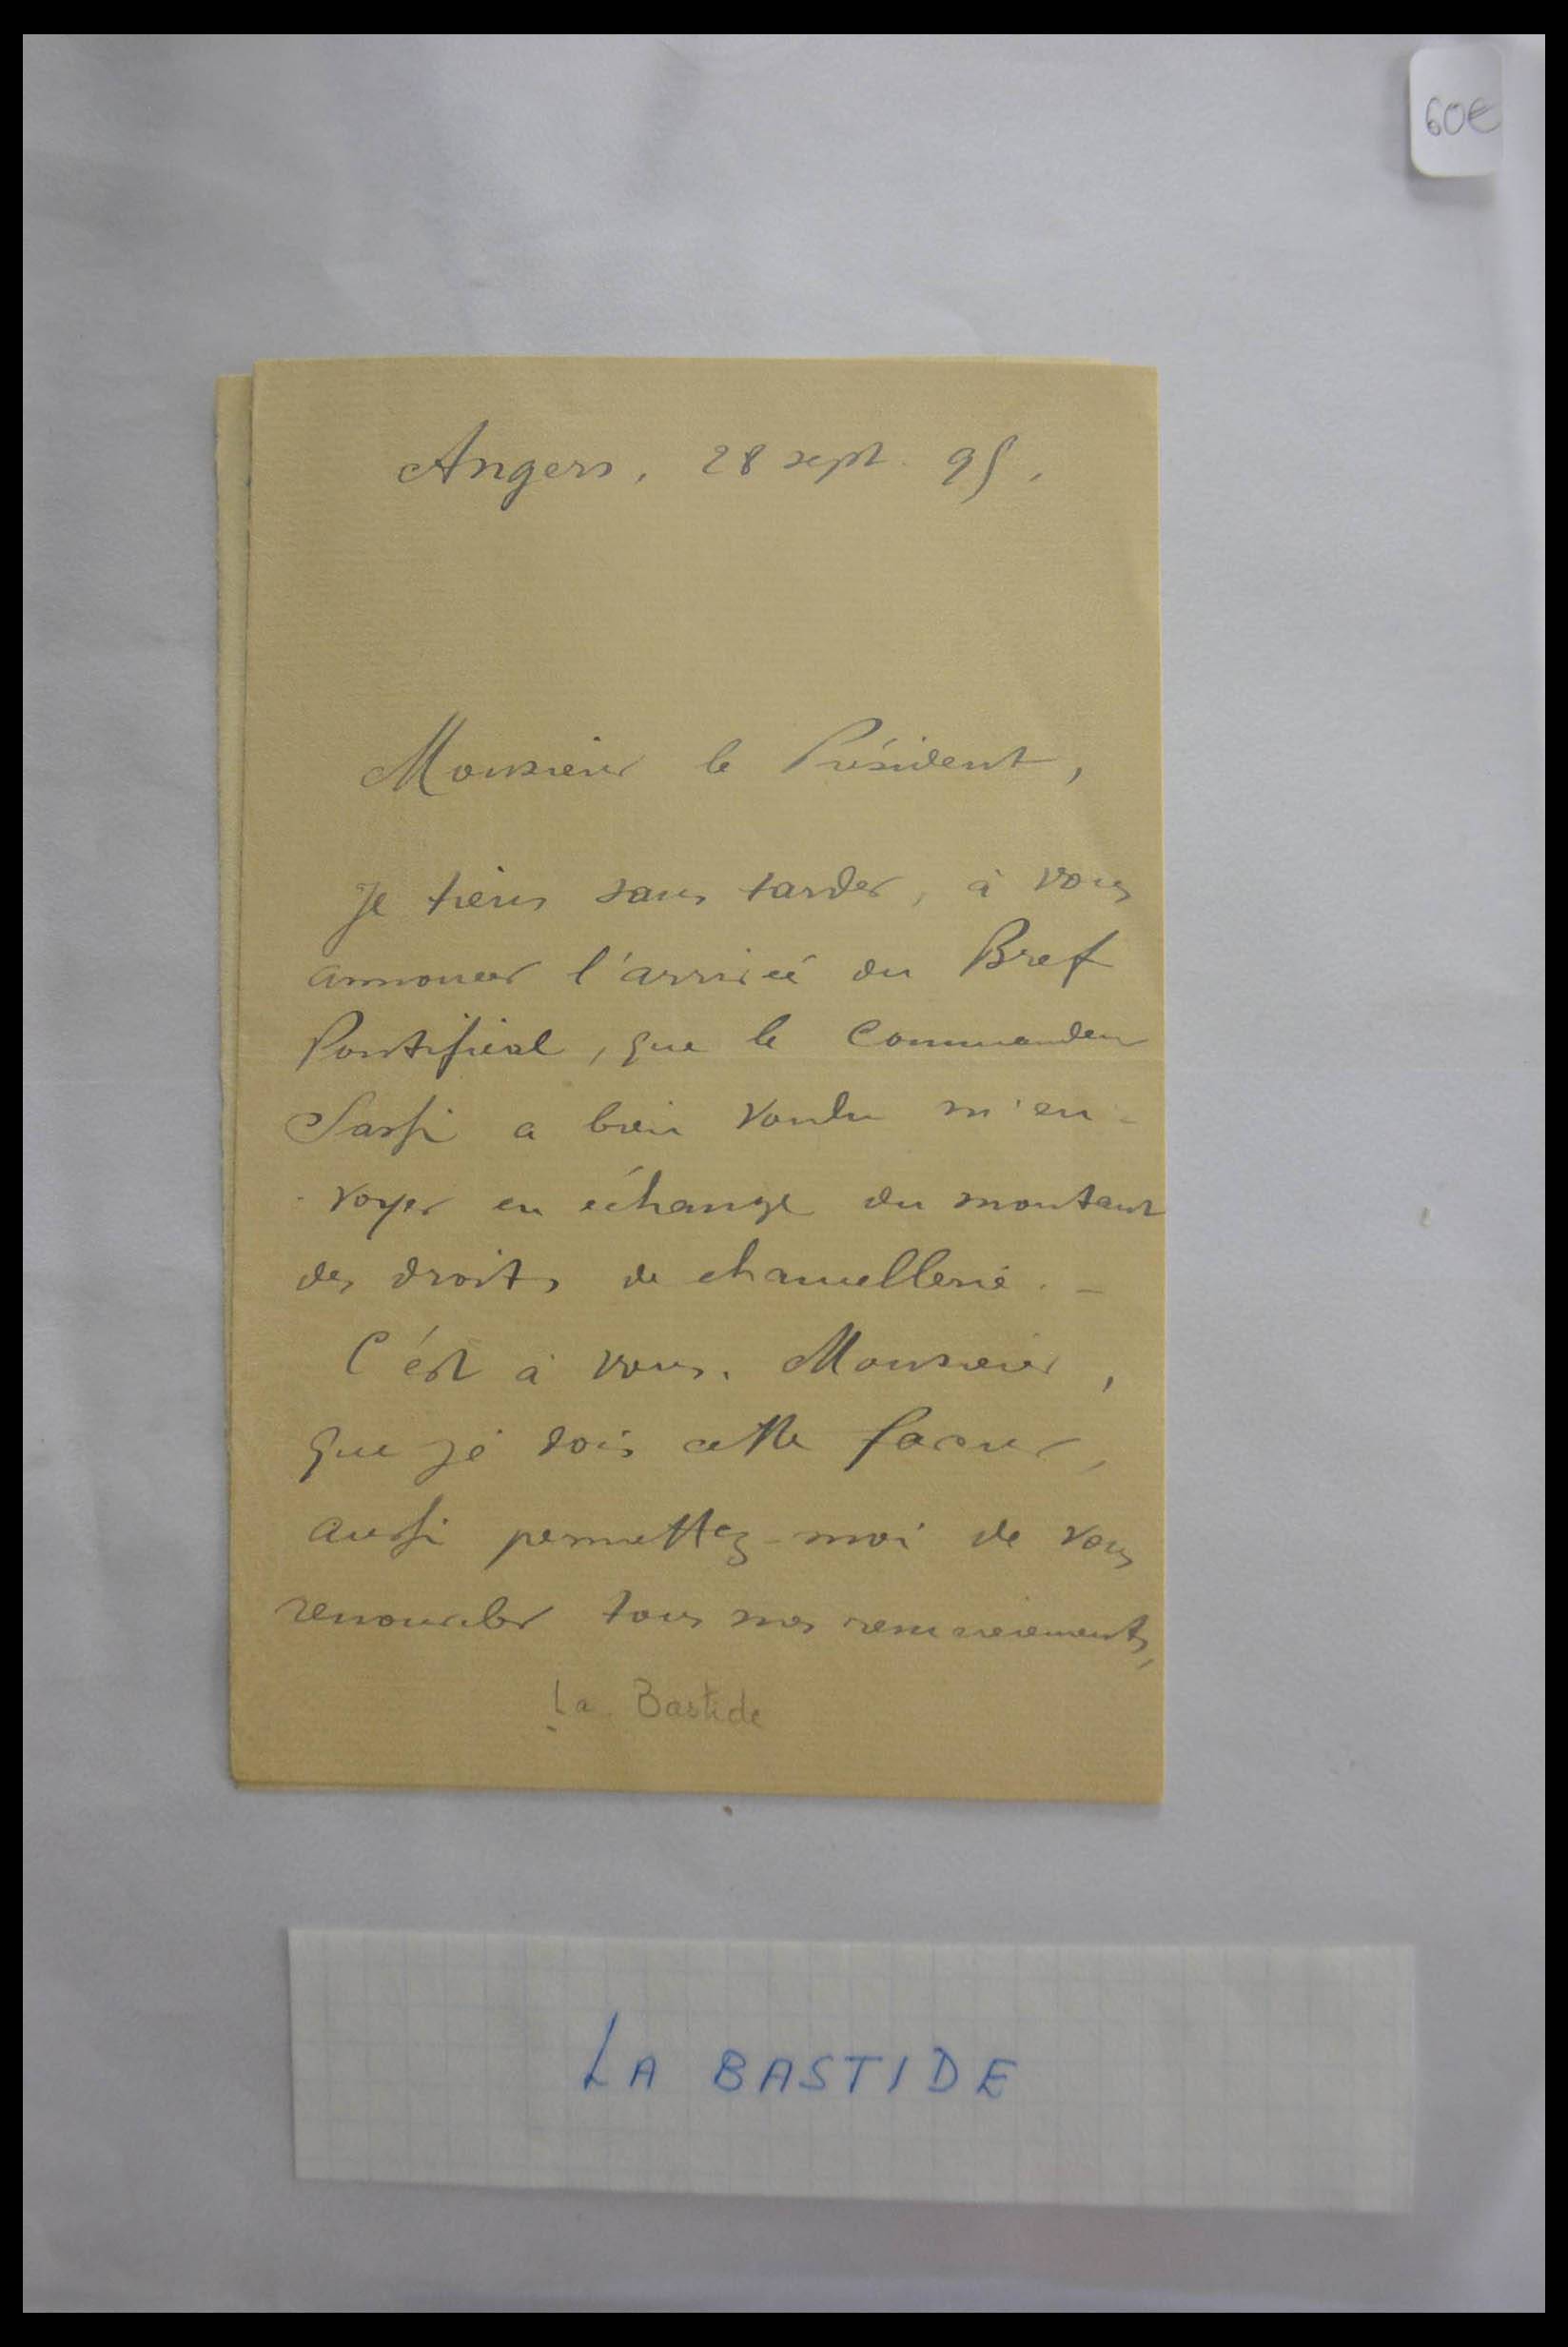 60€
Angers, 28 sept. 95.
Monsieur le Président,
Je tiens sans tarder, à vous
annoncer l'arrivée du Bref
Pontifical, que le Commandeur
a bien voulu m'en-
-voyer en échange du montant
des droits de chancellerie. -
C'est à vous, Monsieur,
que je dois cette faveur,
aussi permettez-moi de vous
renouveler tous mes remerciements,
La Bastide
LA BASTIDE